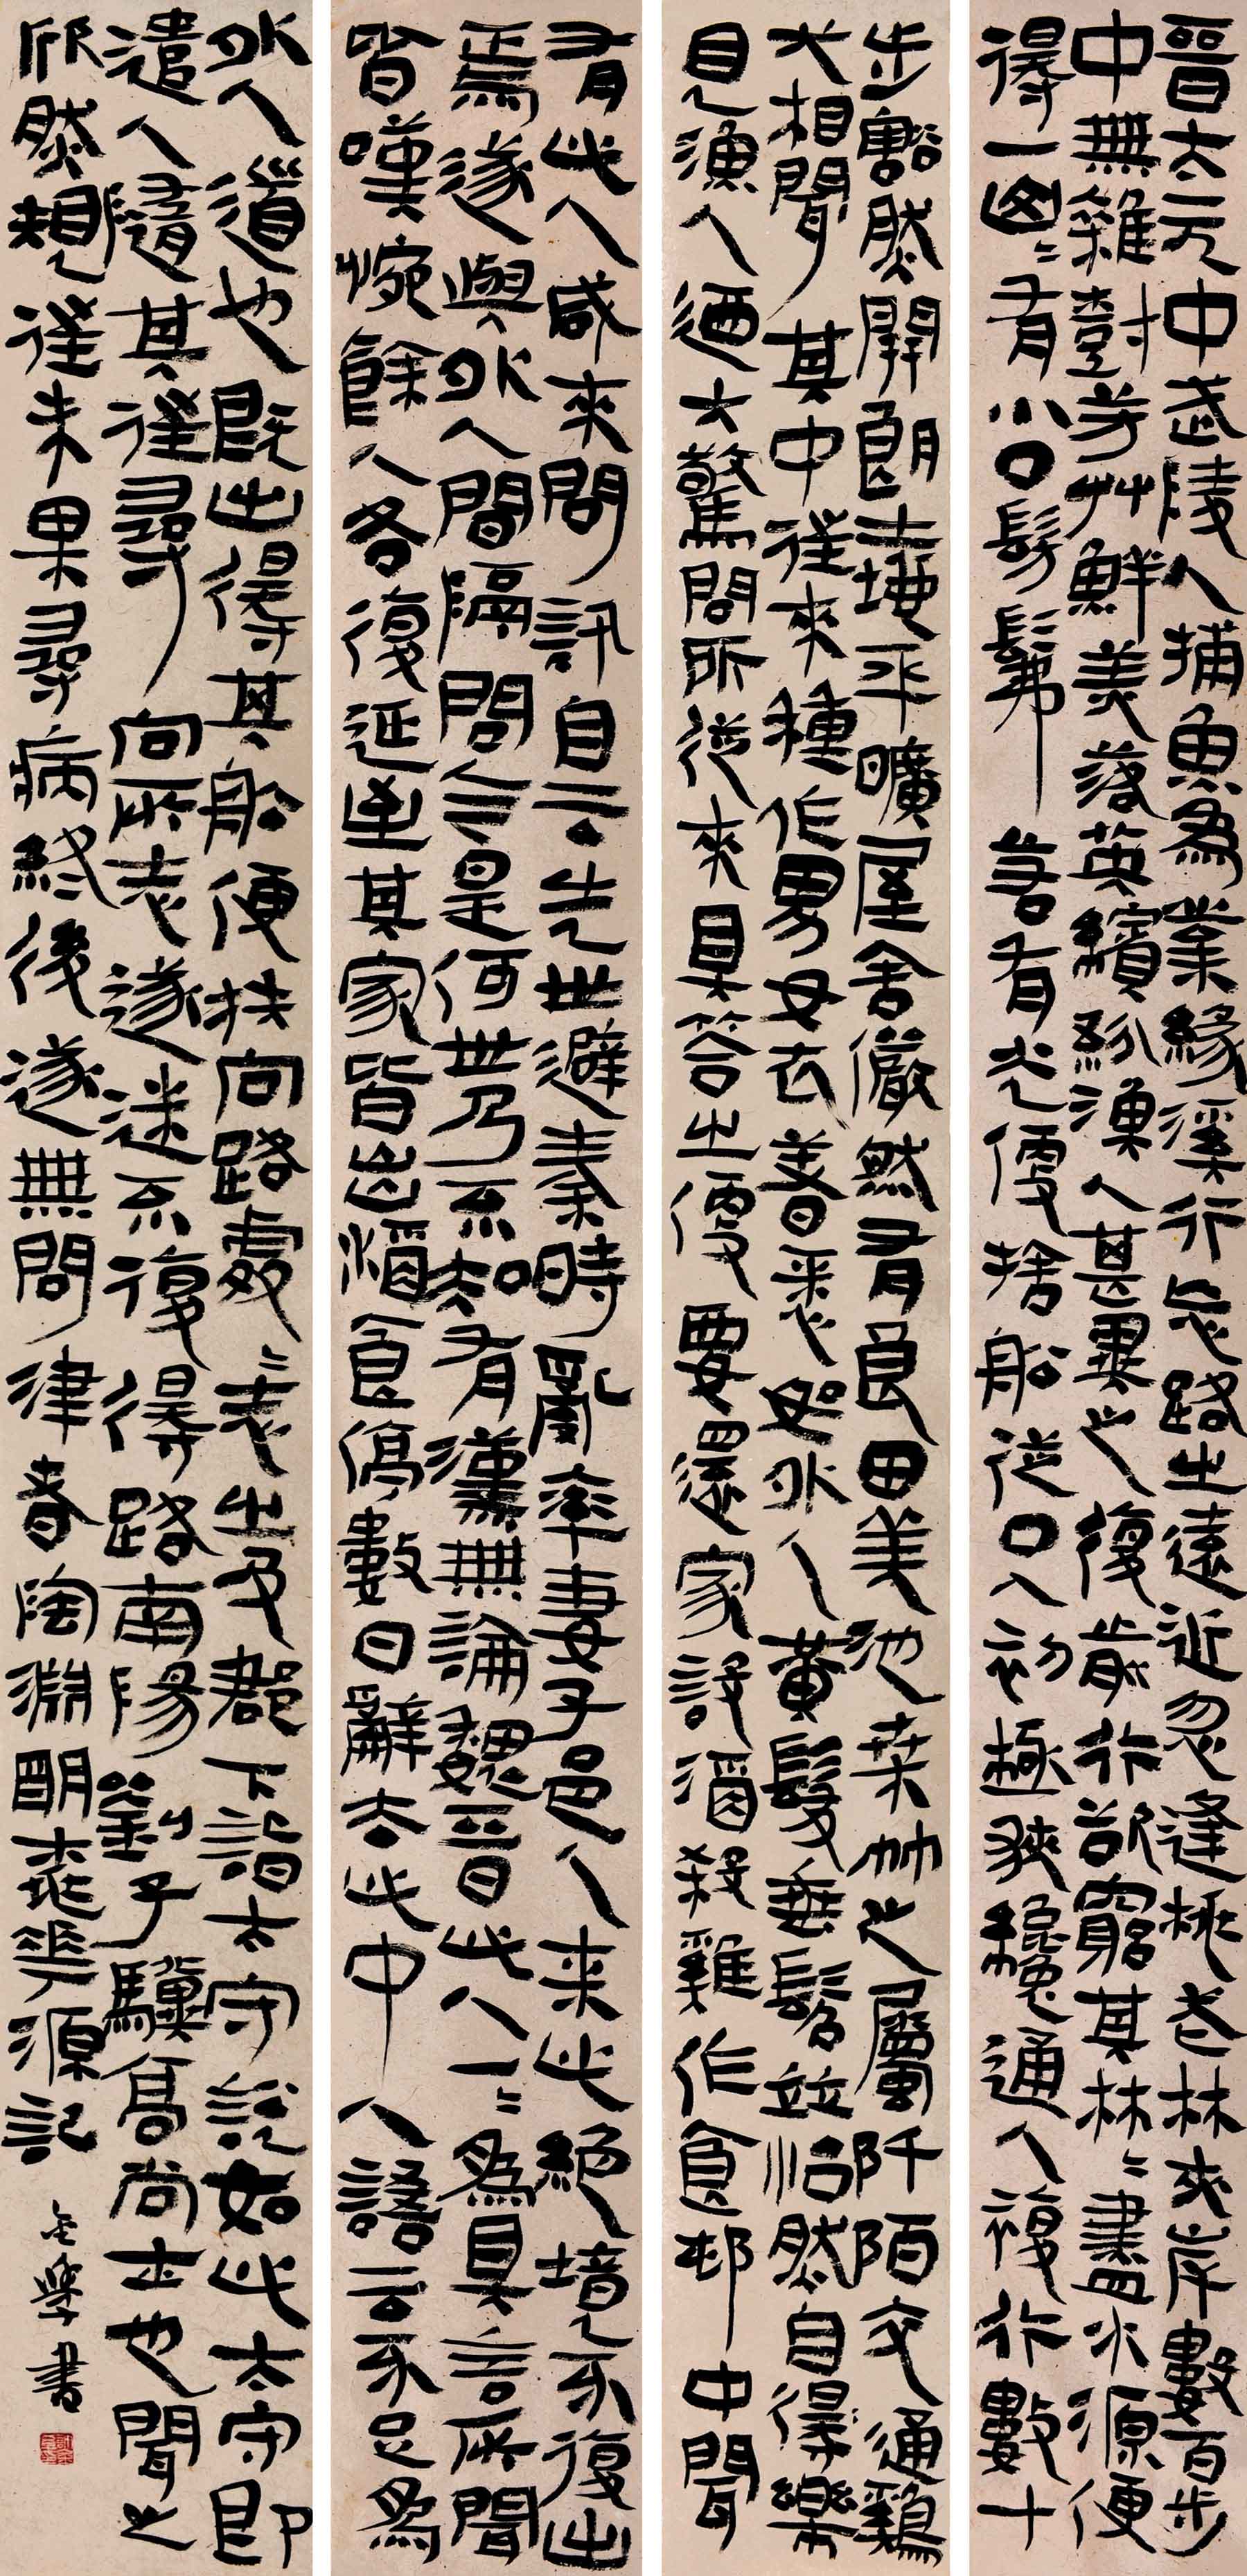 晉太元中武陵人捕魚為業緣溪行忘路之遠近忽逢桃花林夾岸數百步
中無雜樹芳艸鮮美落英繽紛漁人甚異之復前行欲窮其林〻盡水源便
得一山〻有小口髣髴若有光便捨船從口入初極狹纔通人復行數十
步豁然開朗土地平曠屋舍儼然有良田美池桑竹之屬阡陌交通鷄
犬相聞其中往來種作男女衣著悉如外人黃髮垂髫並怡然自得樂
見漁人迺大驚問所從來具答之便要還家設酒殺雞作食邨中聞
有此人咸來問訊自云先世避秦時亂率妻子邑人來此絕境不復出
焉遂與外人間隔問今是何世乃不知有漢無論魏晉此人一〻為具言所聞
皆嘆惋餘人各復延至其家皆出酒食停數日辭去此中人語云不足為
外人道也既出得其船便扶向路處〻志之及郡下詣太守說如此太守即
遣人隨其往尋向所志遂迷不復得路南陽劉子驥高尚士也聞之
欣然規往未果尋病終後遂無問津者陶淵明桃花源記
學書